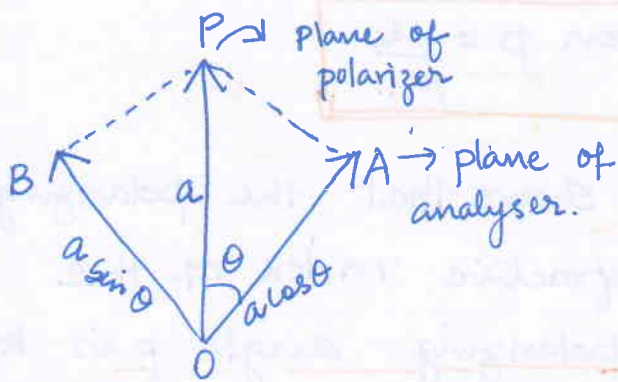 P plane of
polarizer
B
a
A → plane of
analyser.
a sin θ
θ
a cos θ
O